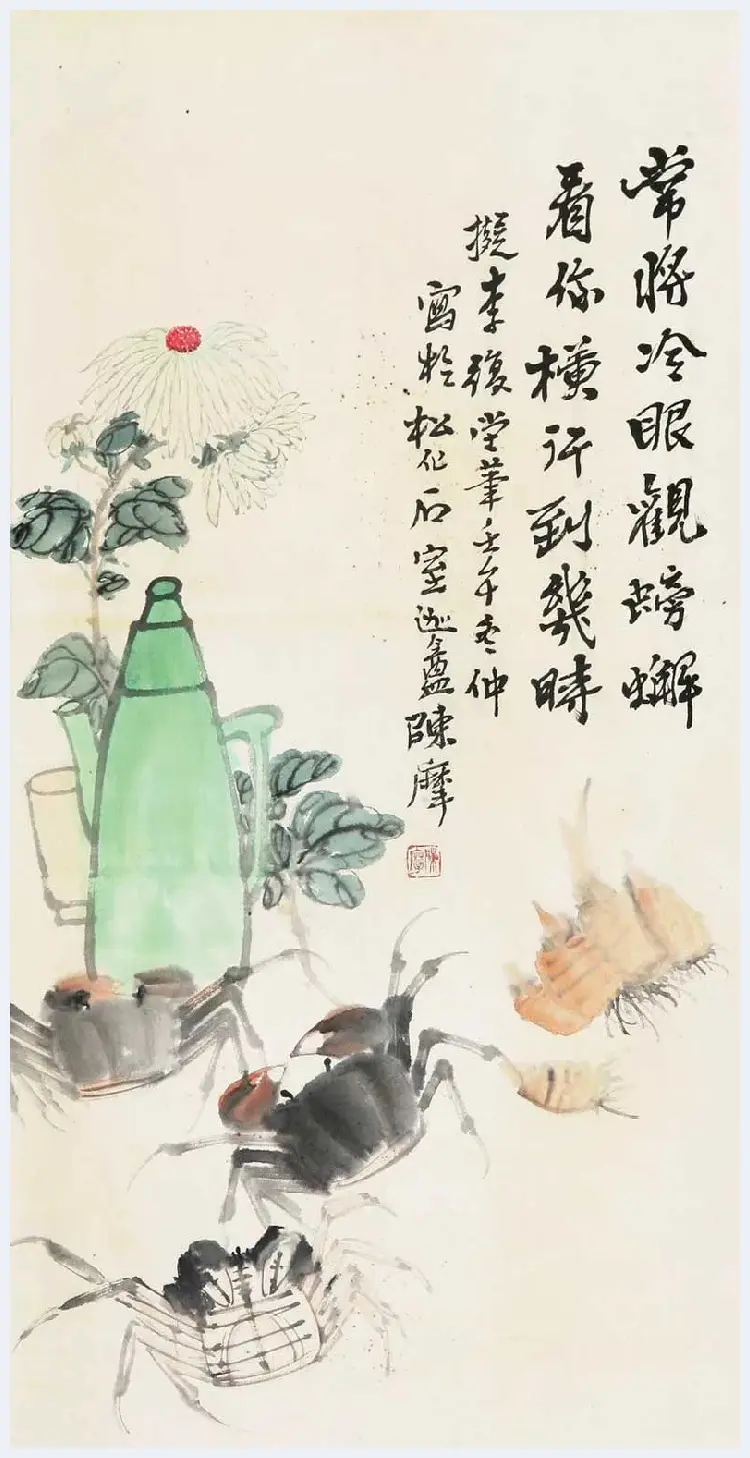 常將冷眼觀螃蠏
看你橫行到幾時
擬李復堂筆壬午冬仲
寫於松化石室迦盦陳摩
陳摩